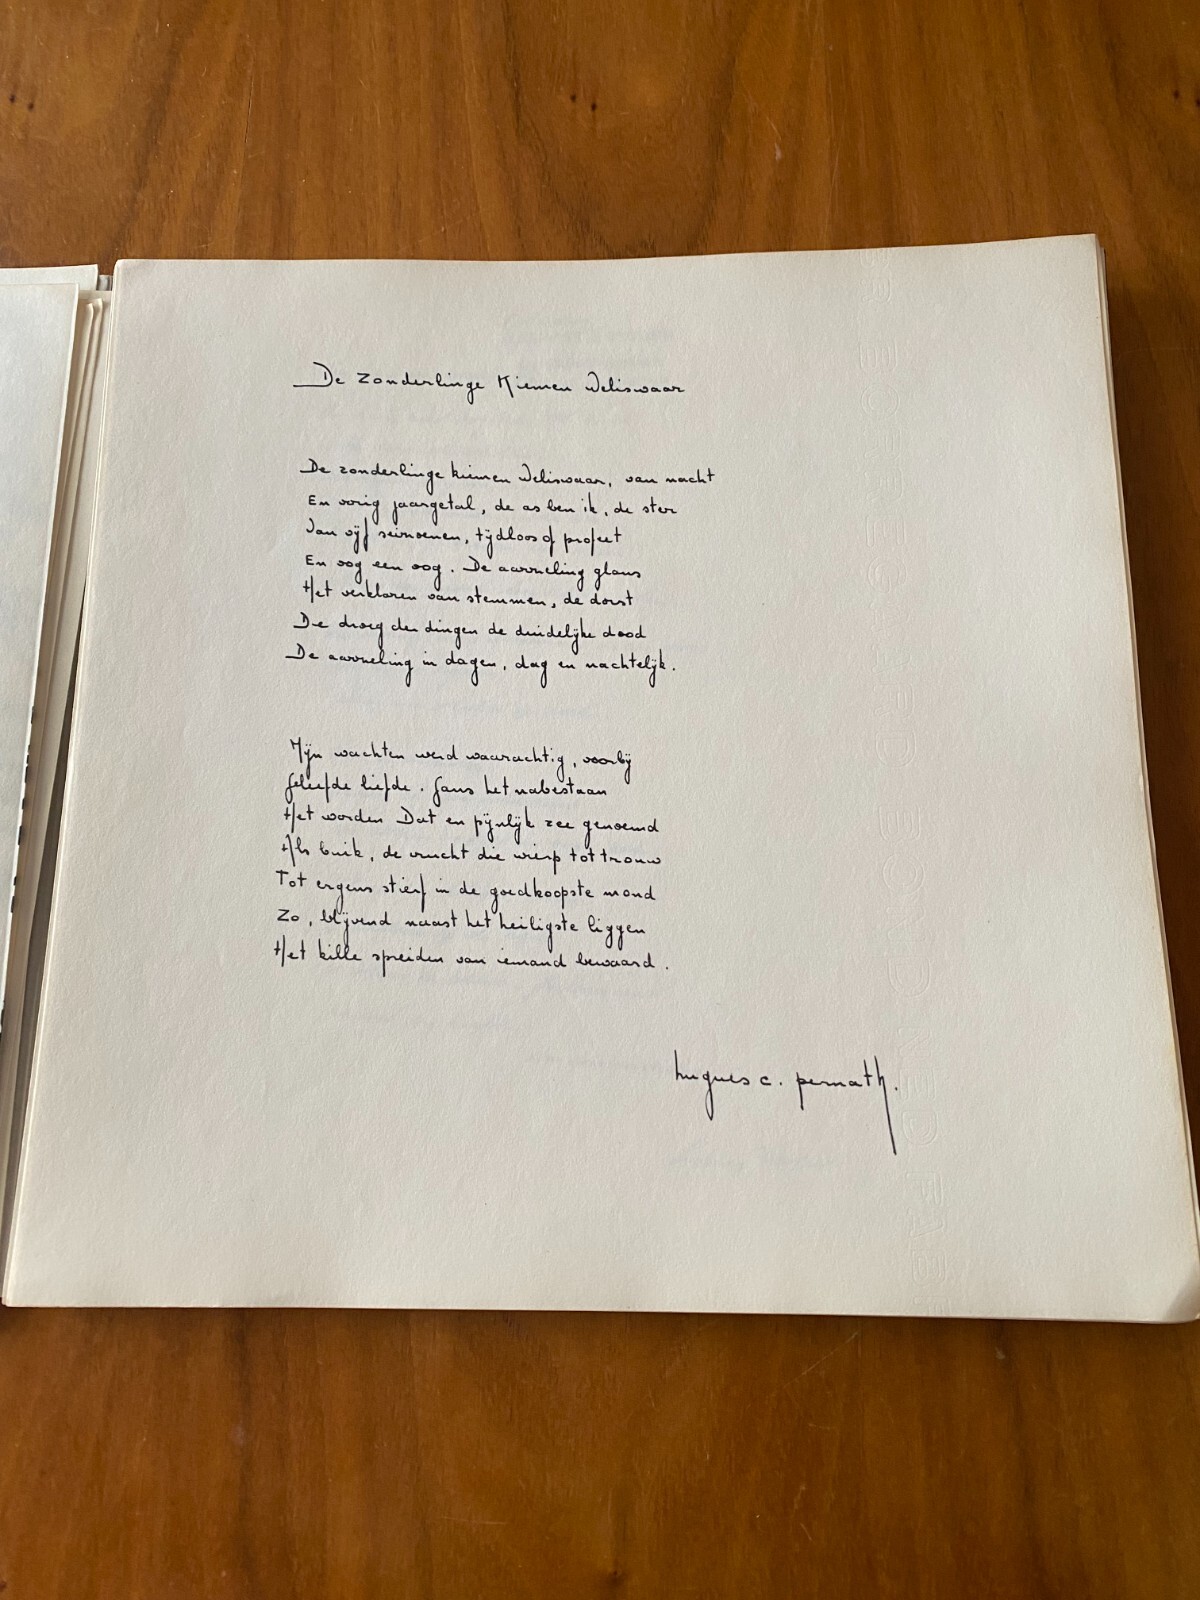 De Zonderlinge Kiemen Weliswaar
De zonderlinge kiemen Weliswaar, van nacht
En vorig jaargetal, de as ben ik, de ster
Van vijf seizoenen, tijdloos of profeet
En oog een oog. De aarzeling glans
Het verklaren van stemmen, de dorst
De droeg der dingen de duidelijke dood
De aarzeling in dagen, dag en nachtelijk.
Mijn wachten werd waarachtig, voorbij
Geliefde liefde. Gans het nabestaan
Het worden Dat en pijnlijk zee genoemd
Als buik, de vrucht die wierp tot trouw
Tot ergens stierf in de goedkoopste mond
Zo, blijvend naast het heiligste liggen
Het kille spreiden van iemand bewaard.
hugues c. pernath.